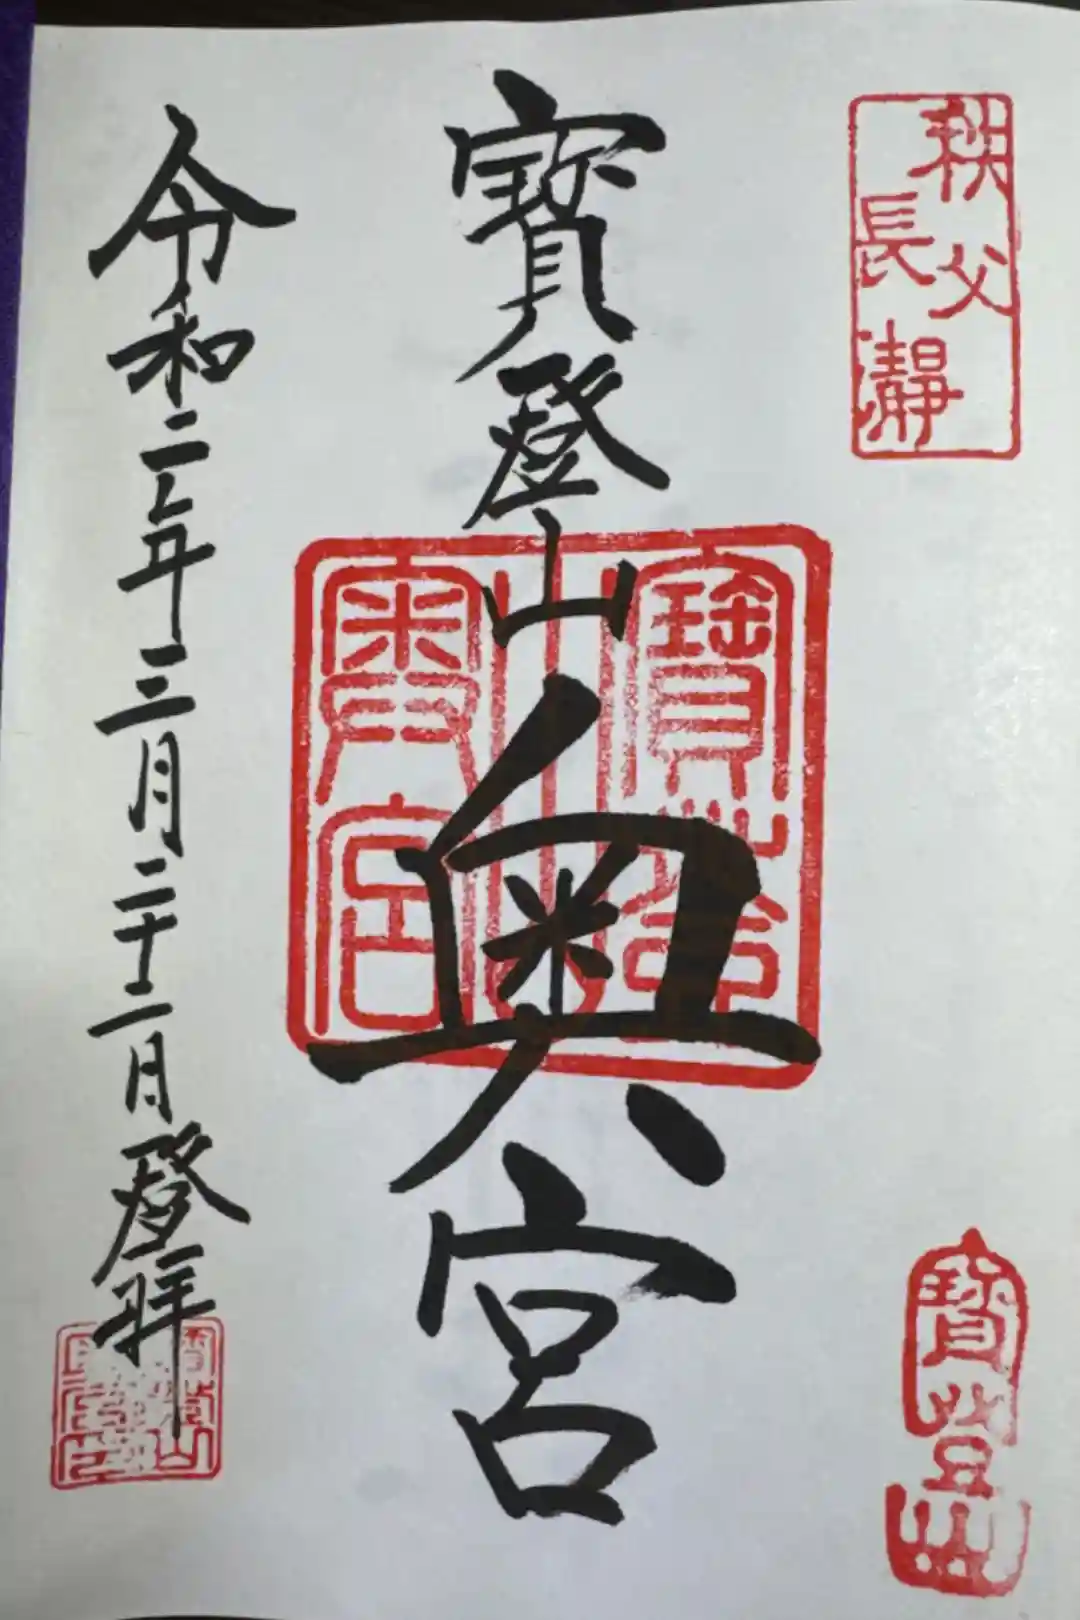 秩父
長瀞
寶登山
寶登山奥宮
寶登山
奥宮
令和二年三月二十二日登拝